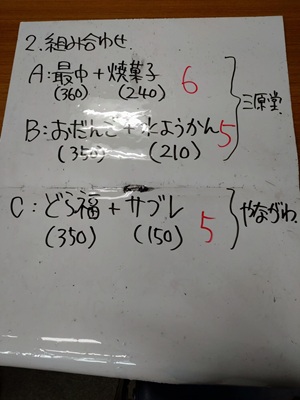 2.組み合わせ.
A:最中+焼菓子 6
(360) (240)
三原堂.
B:おだんご+水ようかん 5
(350) (210)
C:どら福+サブレ
(350) (150) 5
やながわ.